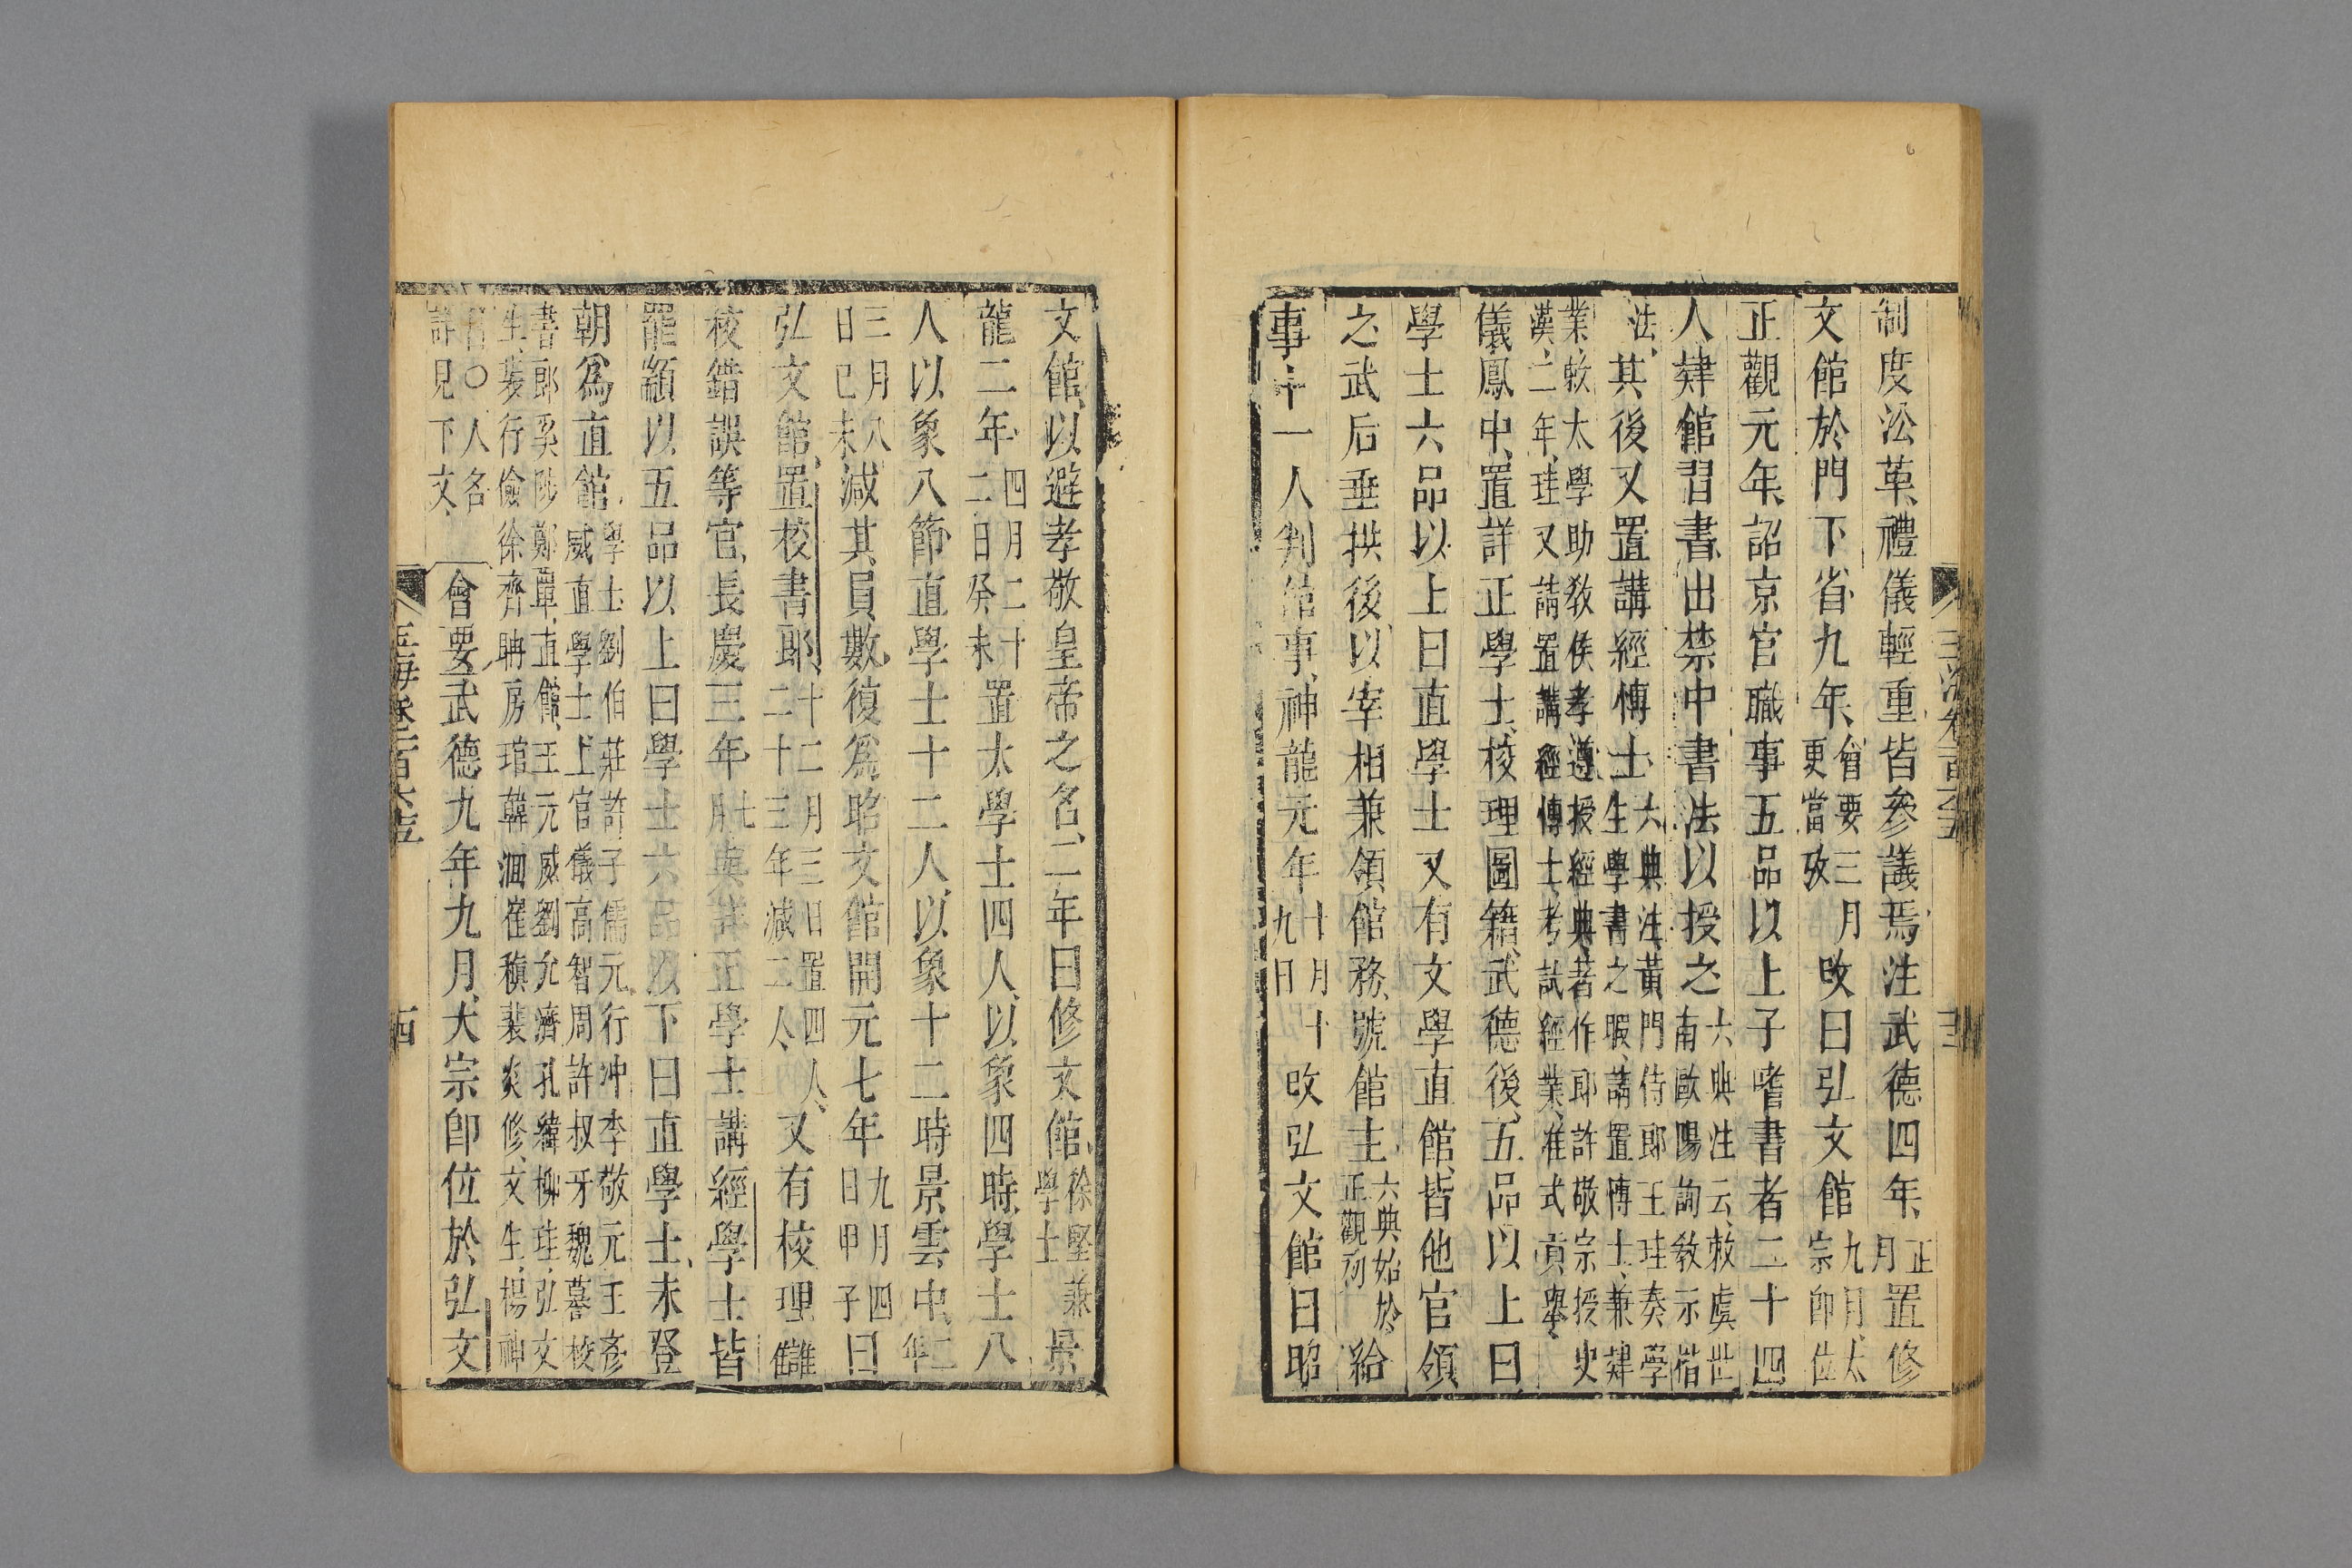 制度㳂革禮儀輕重皆參議焉注武德四年正月置修
文館於門下省九年會要三月更當攷改曰弘文館九月太宗即位
正觀元年詔京官職事五品以上子嗜書者二十四
人肄館習書出禁中書法以授之六典注云敕虞世南歐陽詢敎示楷
法其後又置講經博士六典注黃門侍郎王珪奏學生學書之暇請置博士兼肄
業敕太學助敎侯孝遵授經典著作郎許敬宗授史漢二年珪又請置講經博士考試經業准式貢舉
儀鳳中置詳正學士校理圖籍武德後五品以上曰
學士六品以上曰直學士又有文學直館皆他官領
之武后垂拱後以宰相兼領館務號館主六典始於正觀初給
事中一人判館事神龍元年十月十九日改弘文館曰昭
文館以避孝敬皇帝之名二年曰修文館徐堅兼學士景
龍二年四月二十二日癸未置大學士四人以象四時學士八
人以象八節直學士十二人以象十二時景雲中二年
三月八日己未減其員數復爲昭文館開元七年九月四日甲子曰
弘文館置校書郎十二月三日置四人二十三年減二人又有校理讎
校錯誤等官長慶三年七月與詳正學士講經學士皆
罷顓以五品以上曰學士六品以下曰直學士未登
朝爲直館學士劉伯莊許子儒元行冲李敬元王彥威直學士上官儀高智周許叔牙魏謩校
書郎奚陟鄭覃直館王元威劉允濟孔緯柳珪弘文生裴行儉徐齊聃房琯韓洄崔稹裴炎修文生楊神
〇人名詳見下文會要武德九年九月太宗即位於弘文